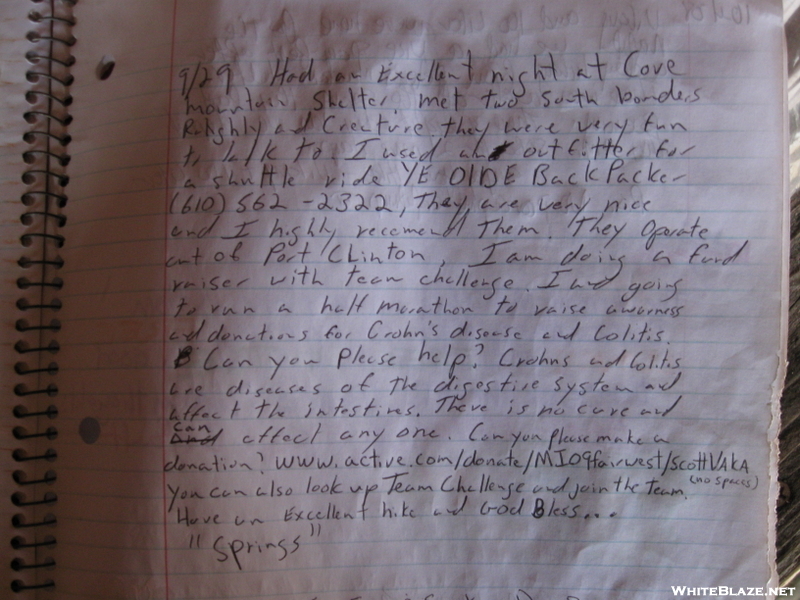 9/29 Had an Excellent night at Cove
mountain Shelter, met two South bonders
and Creature. they were very fun
to talk to. I used an outfitter for
a shuttle ride YE OlDE BackPacker
(610) 562-2322, They are very nice
and I highly recomend Them. They Operate
out of Port CLinton, I am doing a fund
raiser with team challenge. I and going
to run a half marathon to raise awarness
and donations for Crohn's disease and Colitis.
Can you Please help? Crohns and Colitis
are diseases of the digestive system and
affect the intestines. There is no cure and
can affect any one. Can you please make a
donation? www.active.com/donate/MI09fairwest/ScottVAKA
(no spaces)
you can also look up Team Challenge and join the Team.
Have an Excellent hike and God Bless...
"Springs"
WhiteBlaze.net